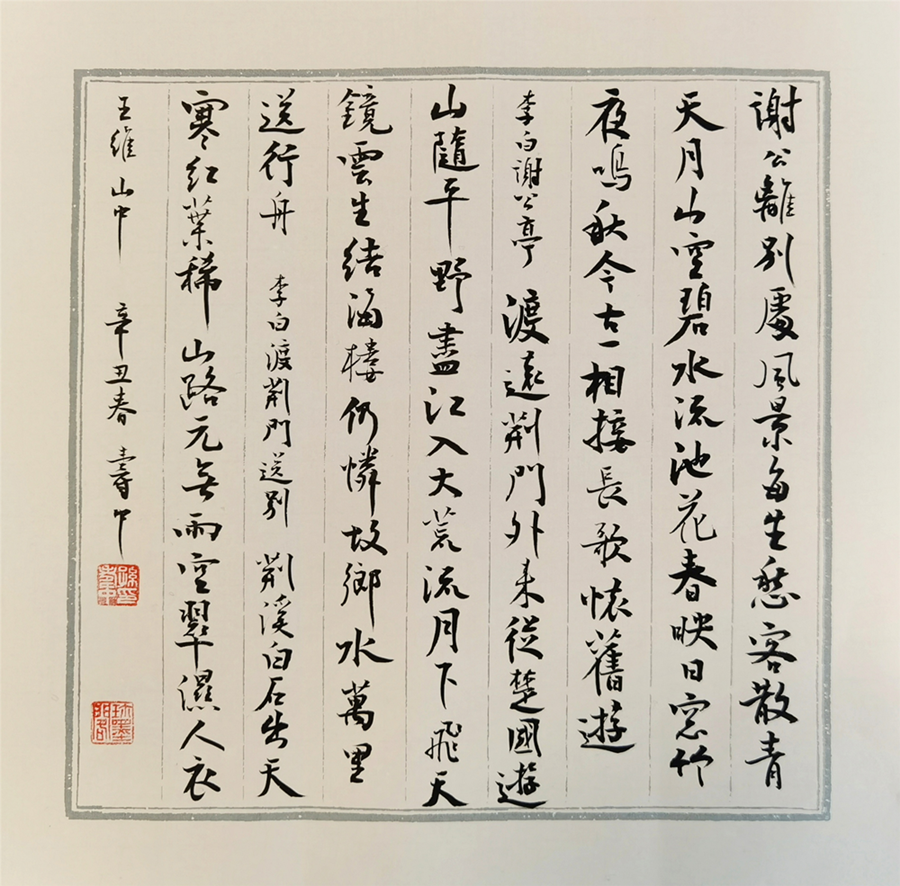 謝公離別處風景每生愁客散青
天月山空碧水流池花春映日窓竹
夜鳴秋今古一相接長歌懷舊遊
李白謝公亭 渡遠荊門外来從楚國遊
山隨平野盡江入大荒流月下飛天
鏡雲生結海樓仍憐故鄉水萬里
送行舟 李白渡荊門送别 荊溪白石出天
寒红葉稀山路元無雨空翠濕人衣
王維 山中 辛丑春 壽中